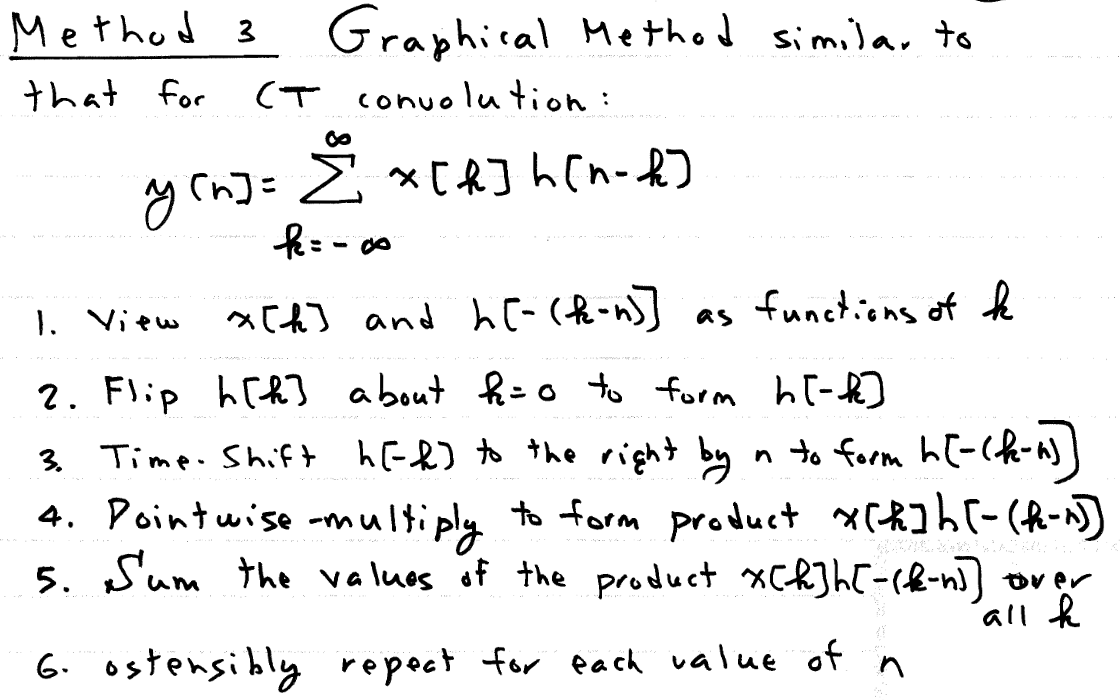 Method 3 Graphical Method similar to
that for CT convolution:
∞
y[n]= Σ x[k] h[n-k]
k=-∞
1. View x[k] and h[-(k-n)] as functions of k
2. Flip h[k] about k=0 to form h[-k]
3. Time-Shift h[-k] to the right by n to form h[-(k-n)]
4. Pointwise-multiply to form product x[k]h[-(k-n)]
5. Sum the values of the product x[k]h[-(k-n)] over
all k
6. ostensibly repeat for each value of n